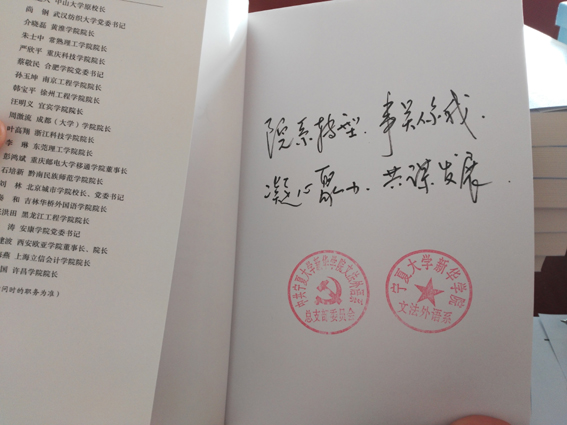 中山大学原校长
尚 钢 武汉纺织大学党委书记
介晓磊 黄淮学院院长
朱士中 常熟理工学院院长
严欣平 重庆科技学院院长
蔡敬民 合肥学院党委书记
孙玉坤 南京工程学院院长
韩宝平 徐州工程学院院长
汪明义 宜宾学院院长
周激流 成都（大学）学院院长
叶高翔 浙江科技学院院长
李 琳 东莞理工学院院长
彭鸿斌 重庆邮电大学移通学院董事长
石培新 黔南民族师范学院院长
刘 林 北京城市学院校长、党委书记
和 吉林华桥外国语学院院长
洪田 黑龙江工程学院院长
涛 安康学院党委书记
建波 西安欧亚学院董事长、院长
海燕 上海立信会计学院院长
国 许昌学院院长
问时的职务为准）
院系转型．事关你我．
凝心聚力．共谋发展．
中共宁夏大学新华学院文法外语系
总支部委员会
宁夏大学新华学院
文法外语系